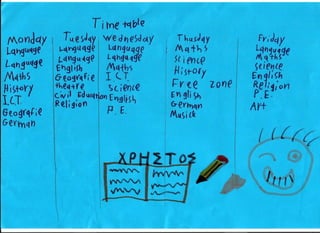 Time table
Monday
Language
Language
Maths
History
I.C.T.
Geografie
German
Tuesday
Language
Language
English
Geografie
theatre
Civil Education
Religion
Wednesday
Language
Language
Maths
I.C.T.
Science
English
P.E.
Thusday
Maths
science
History
Free zone
English
German
Musick
Friday
Language
Maths
science
English
Religion
P.E.
Art
ΧΡΗΣΤΟΣ